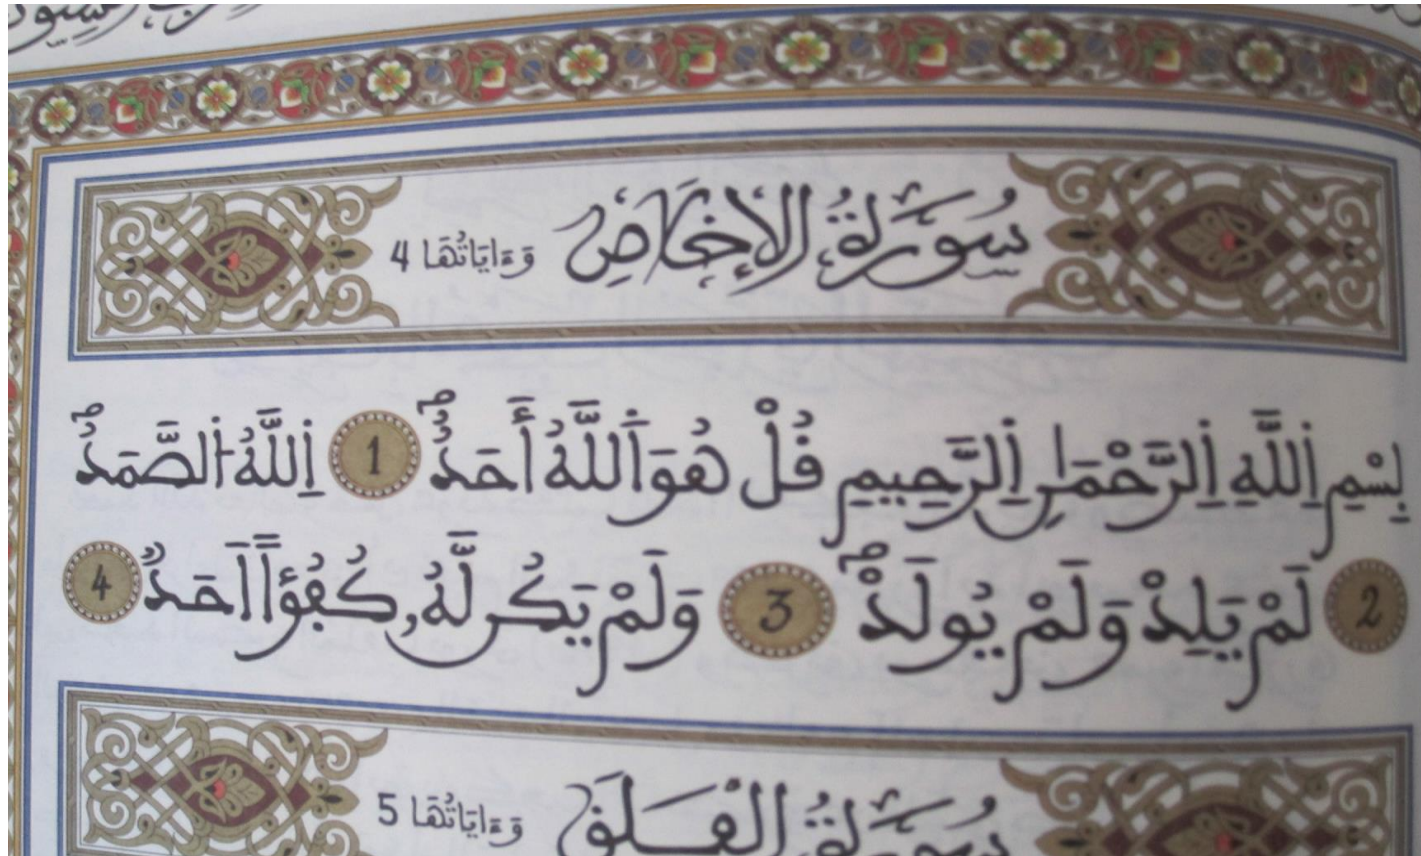 سُورَةُ الإِخْلَاصِ وَءَايَاتُهَا 4
بِسْمِ اِللَّهِ اِلرَّحْمَٰنِ اِلرَّحِيمِ قُلْ هُوَ اَللَّهُ أَحَدٌ 1 اِللَّهُ اُلصَّمَدُ
2 لَمْ يَلِدْ وَلَمْ يُولَدْ 3 وَلَمْ يَكُن لَّهُۥ كُفُؤاً اَحَدٌ 4
سُورَةُ الْفَلَقِ وَءَايَاتُهَا 5